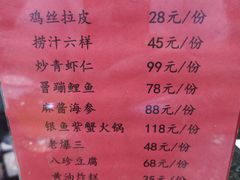 鸡丝拉皮 28元/份
捞汁六样 45元/份
炒青虾仁 99元/份
罾蹦鲤鱼 78元/份
麻酱海参 88元/份
银鱼紫蟹火锅 118元/份
老爆三 48元/份
八珍豆腐 68元/份
黄油炸糕 35元/份